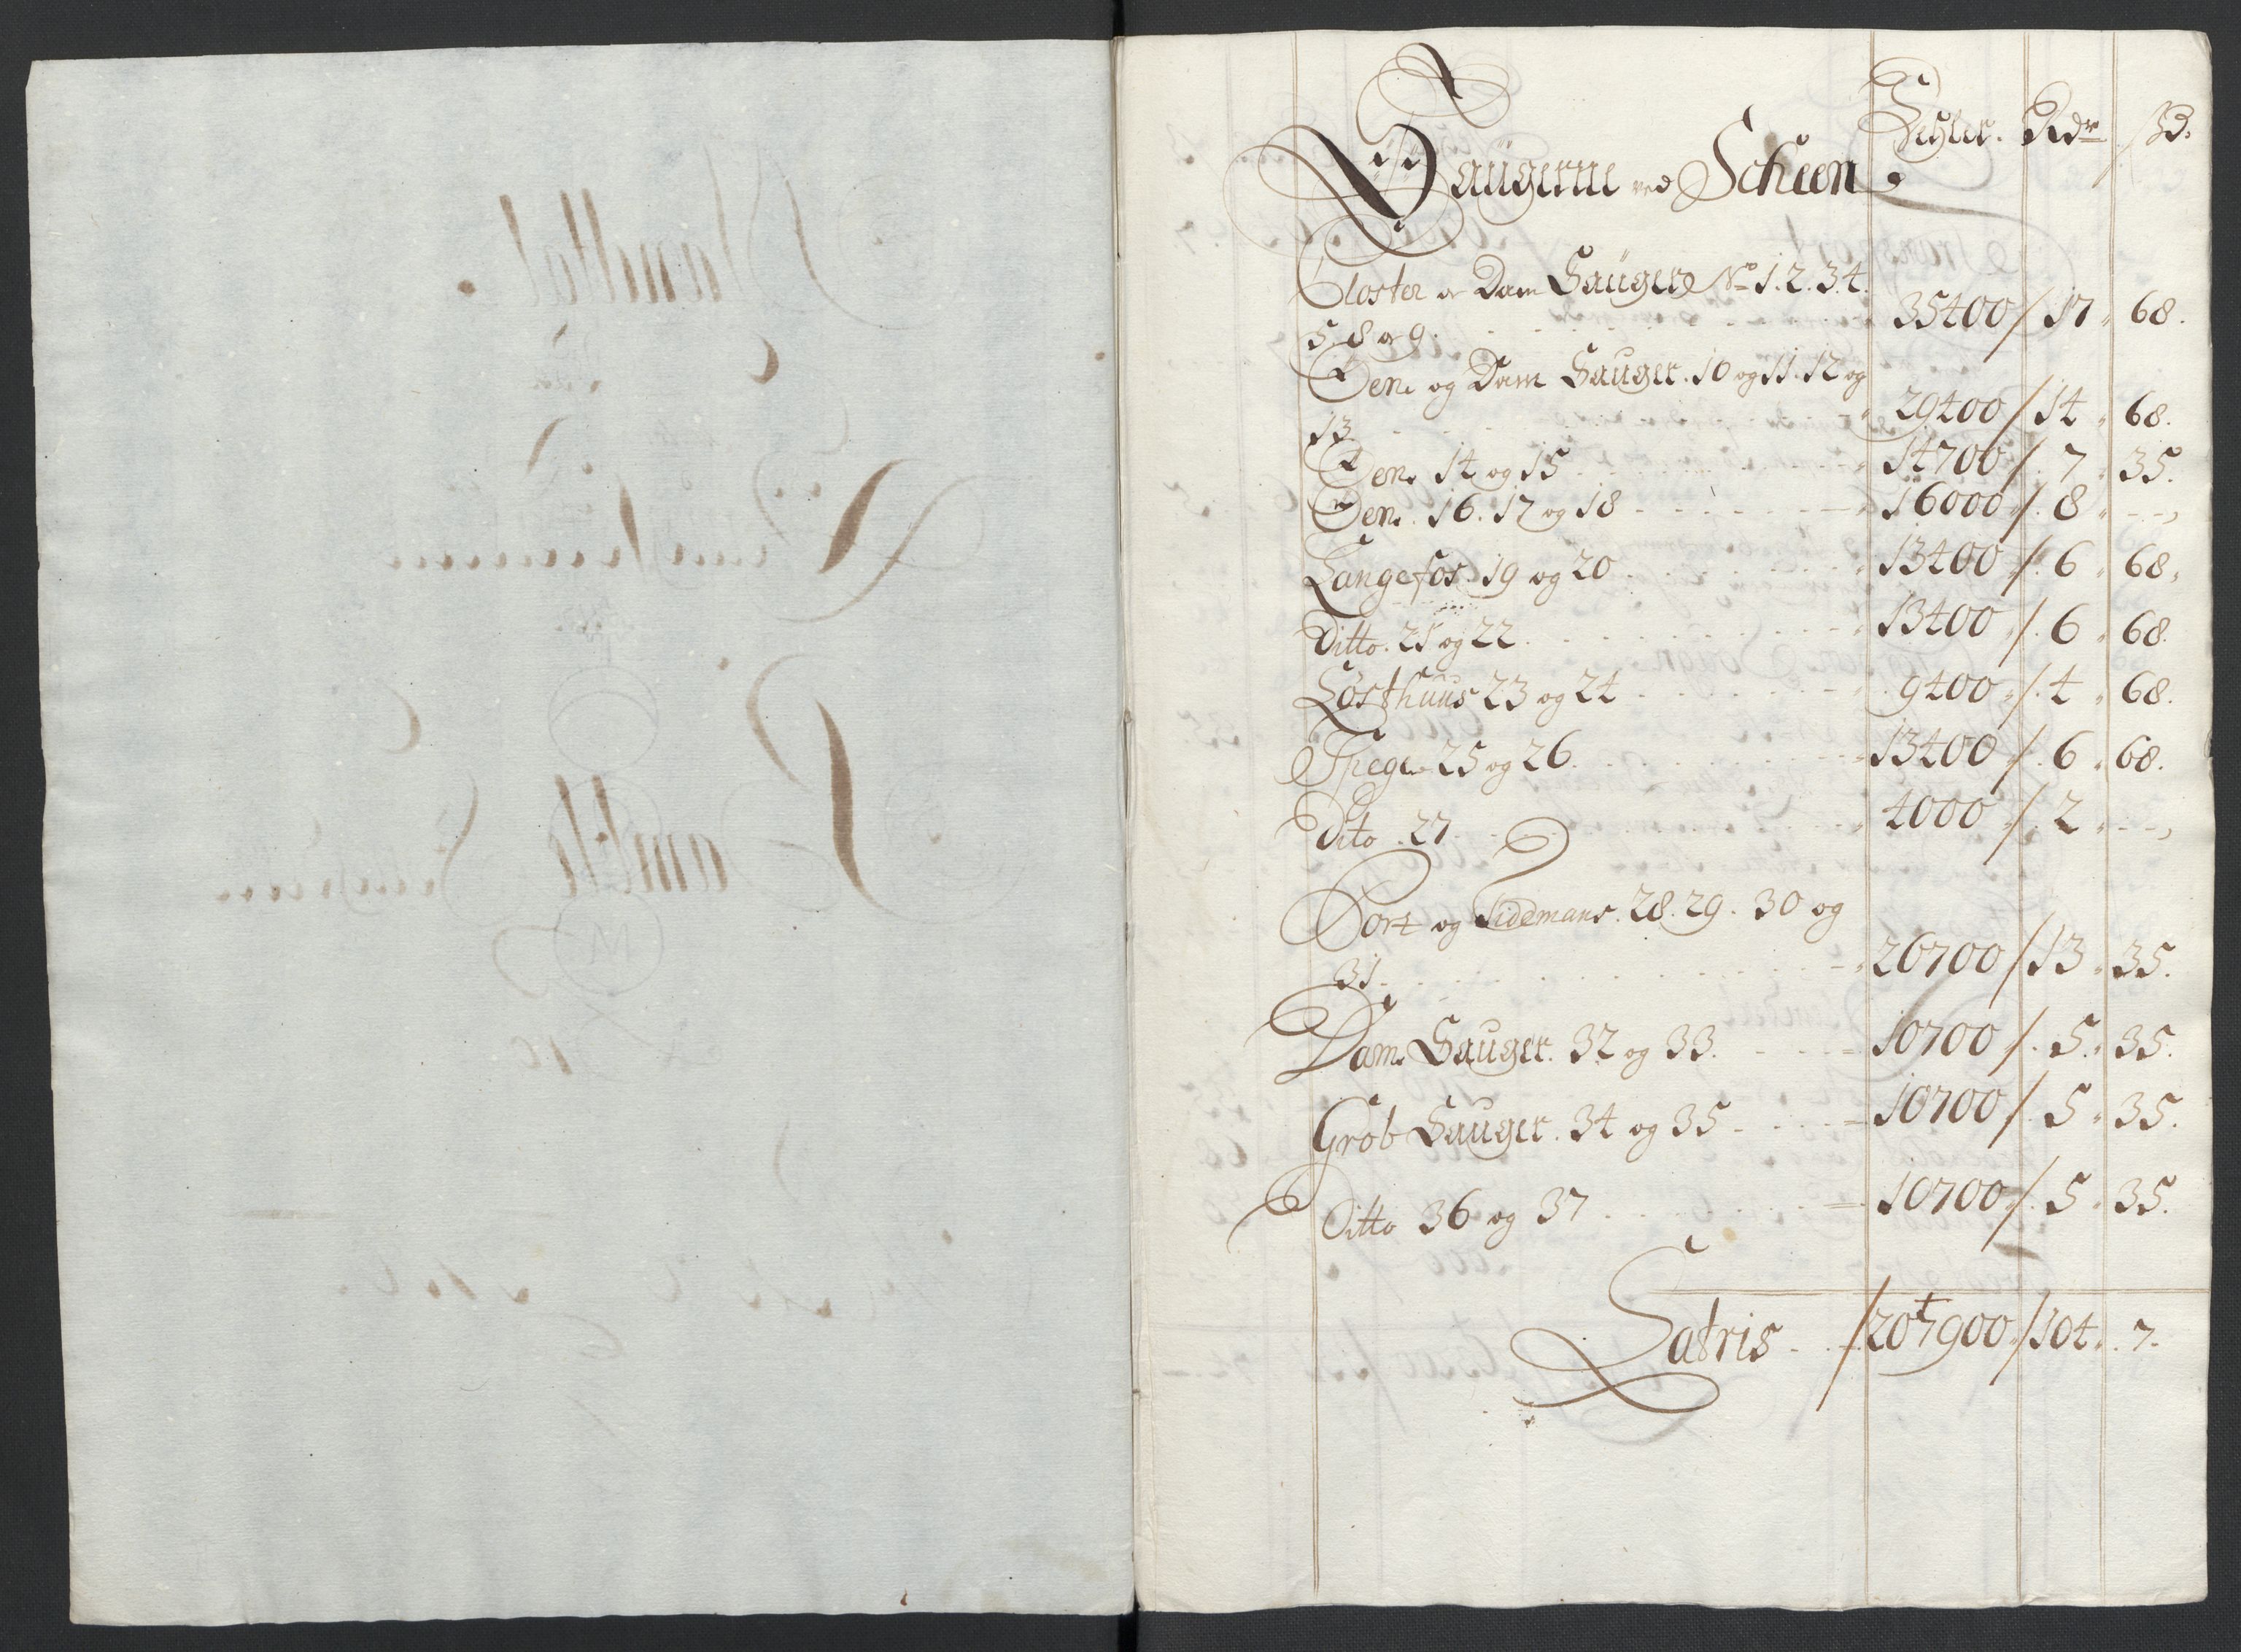 Dehler. Rdr ß.
Saugerne ved Scheen
Closter og Dam Sauger No 1. 2. 3. 4.
5. 8 og 9. 35400 / 17 68.
Den. og Dam Sauger. 10 og 11. 12 og
13 29400 / 14 68.
Den. 14 og 15 14700 / 7 35.
Den. 16. 17 og 18 16000 / 8 -
Langefos. 19 og 20 13400 / 6 68.
Ditto. 21 og 22 13400 / 6 68.
Løsthuus 23 og 24 9400 / 4 68.
Speger 25 og 26 13400 / 6 68.
Dito. 27 4000 / 2 -
Port og Tidemans. 28. 29. 30 og
31 26700 / 13 35.
Dam. Sauger. 32 og 33 10700 / 5 35.
Grob Sauger. 34 og 35 10700 / 5 35.
Ditto 36 og 37 10700 / 5 35.
Latris / 207900 / 104 7.